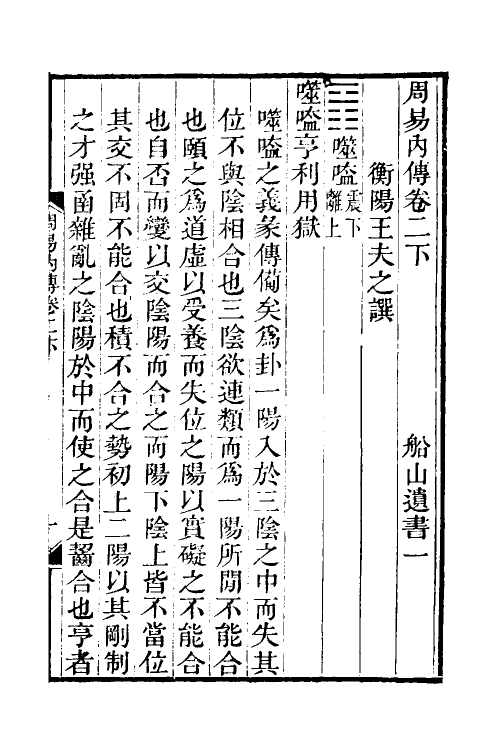 周易內傳卷二下　船山遺書一
衡陽王夫之譔
䷔噬嗑震下離上
噬嗑亨利用獄
噬嗑之義彖傳備矣爲卦一陽入於三陰之中而失其
位不與陰相合也三陰欲連類而爲一陽所閒不能合
也頤之爲道虛以受養而失位之陽以實礙之不能合
也自否而變以交陰陽而合之而陽下陰上皆不當位
其交不固不能合也積不合之勢初上二陽以其剛制
之才强函雜亂之陰陽於中而使之合是齧合也亨者
周易內傳卷二下